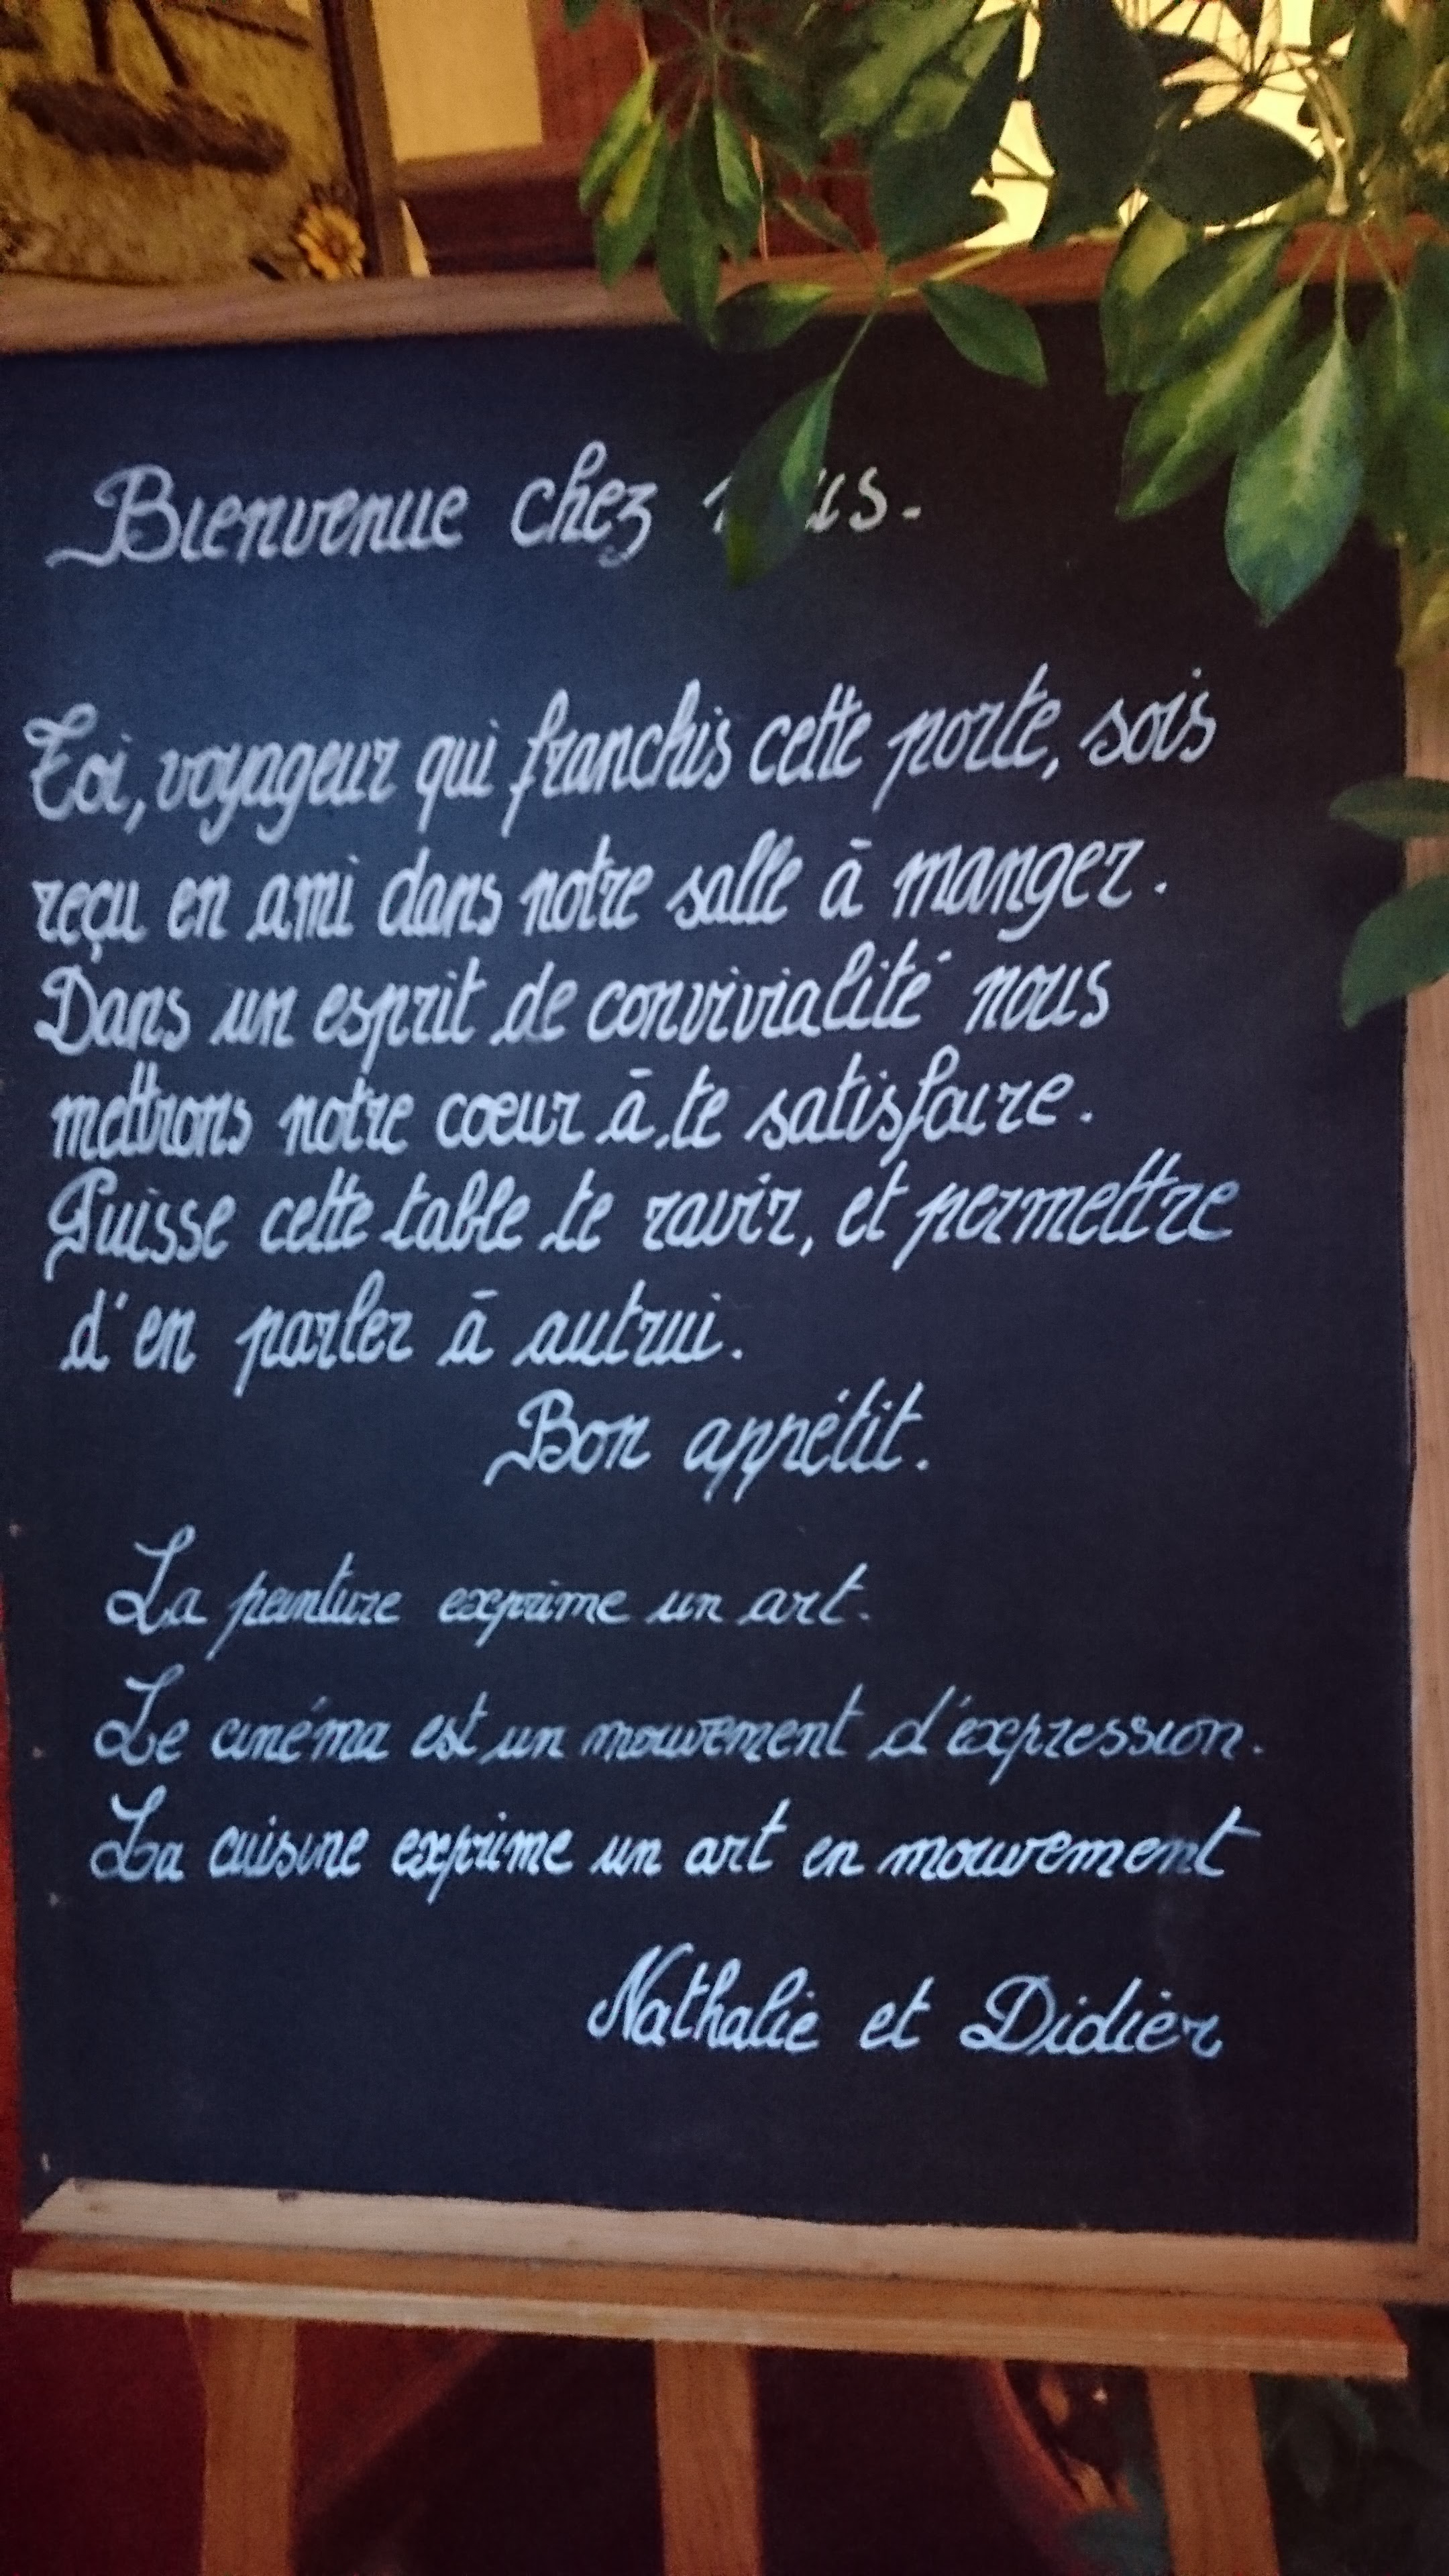 Bienvenue chez nous.
Toi, voyageur qui franchis cette porte, sois
reçu en ami dans notre salle à manger.
Dans un esprit de convivialité nous
mettrons notre cœur à te satisfaire.
Puisse cette table te ravir, et permettre
d'en parler à autrui.
Bon appétit.
La peinture exprime un art.
Le cinéma est un mouvement d'expression.
La cuisine exprime un art en mouvement
Nathalie et Didier